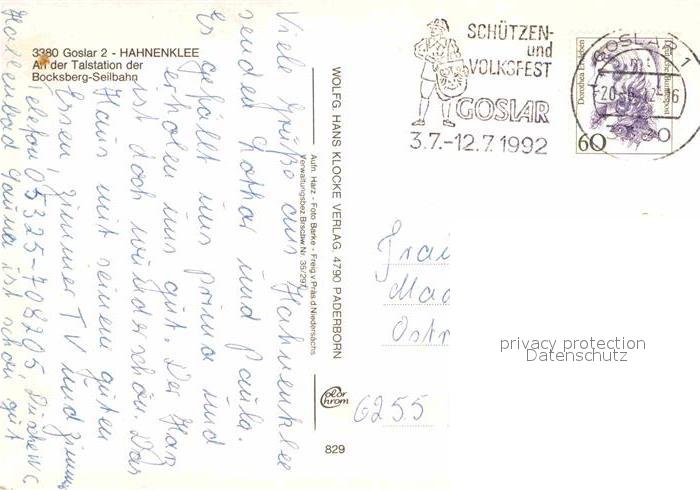 3380 Goslar 2 - HAHNENKLEE
An der Talstation der
Bocksberg-Seilbahn
Viele Grüße aus Hahnenklee
senden Lothar und Paula.
Es gefällt uns prima und
erholen uns gut. Der Harz
ist doch wunderschön. Das
Haus mit seinem guten
Essen, Zimmer TV und Zimmer
Telefon 05325-708205 Dusche WC
Hallenbad Sauna ist schon gut
WOLFG. HANS KLOCKE VERLAG. 4790 PADERBORN
Aufn. Harz - Foto Barke - Freig. v. Präs. d. Niedersächs.
Verwaltungsbez. Brschw Nr. 35/297
color
chrom
829
SCHÜTZEN-
und
VOLKSFEST
GOSLAR
3.7.-12.7.1992
GOSLAR 1
Dorothea Erxleben
Deutsche Bundespost
60
Frau
Ostr
6255
privacy protection
Datenschutz